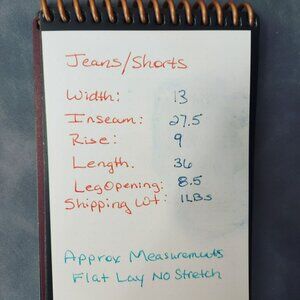 Jeans/Shorts
Width: 13
Inseam: 27.5
Rise: 9
Length. 36
Leg Opening: 8.5
Shipping Wt: 1LB.s
Approx Measurements
Flat Lay No Stretch